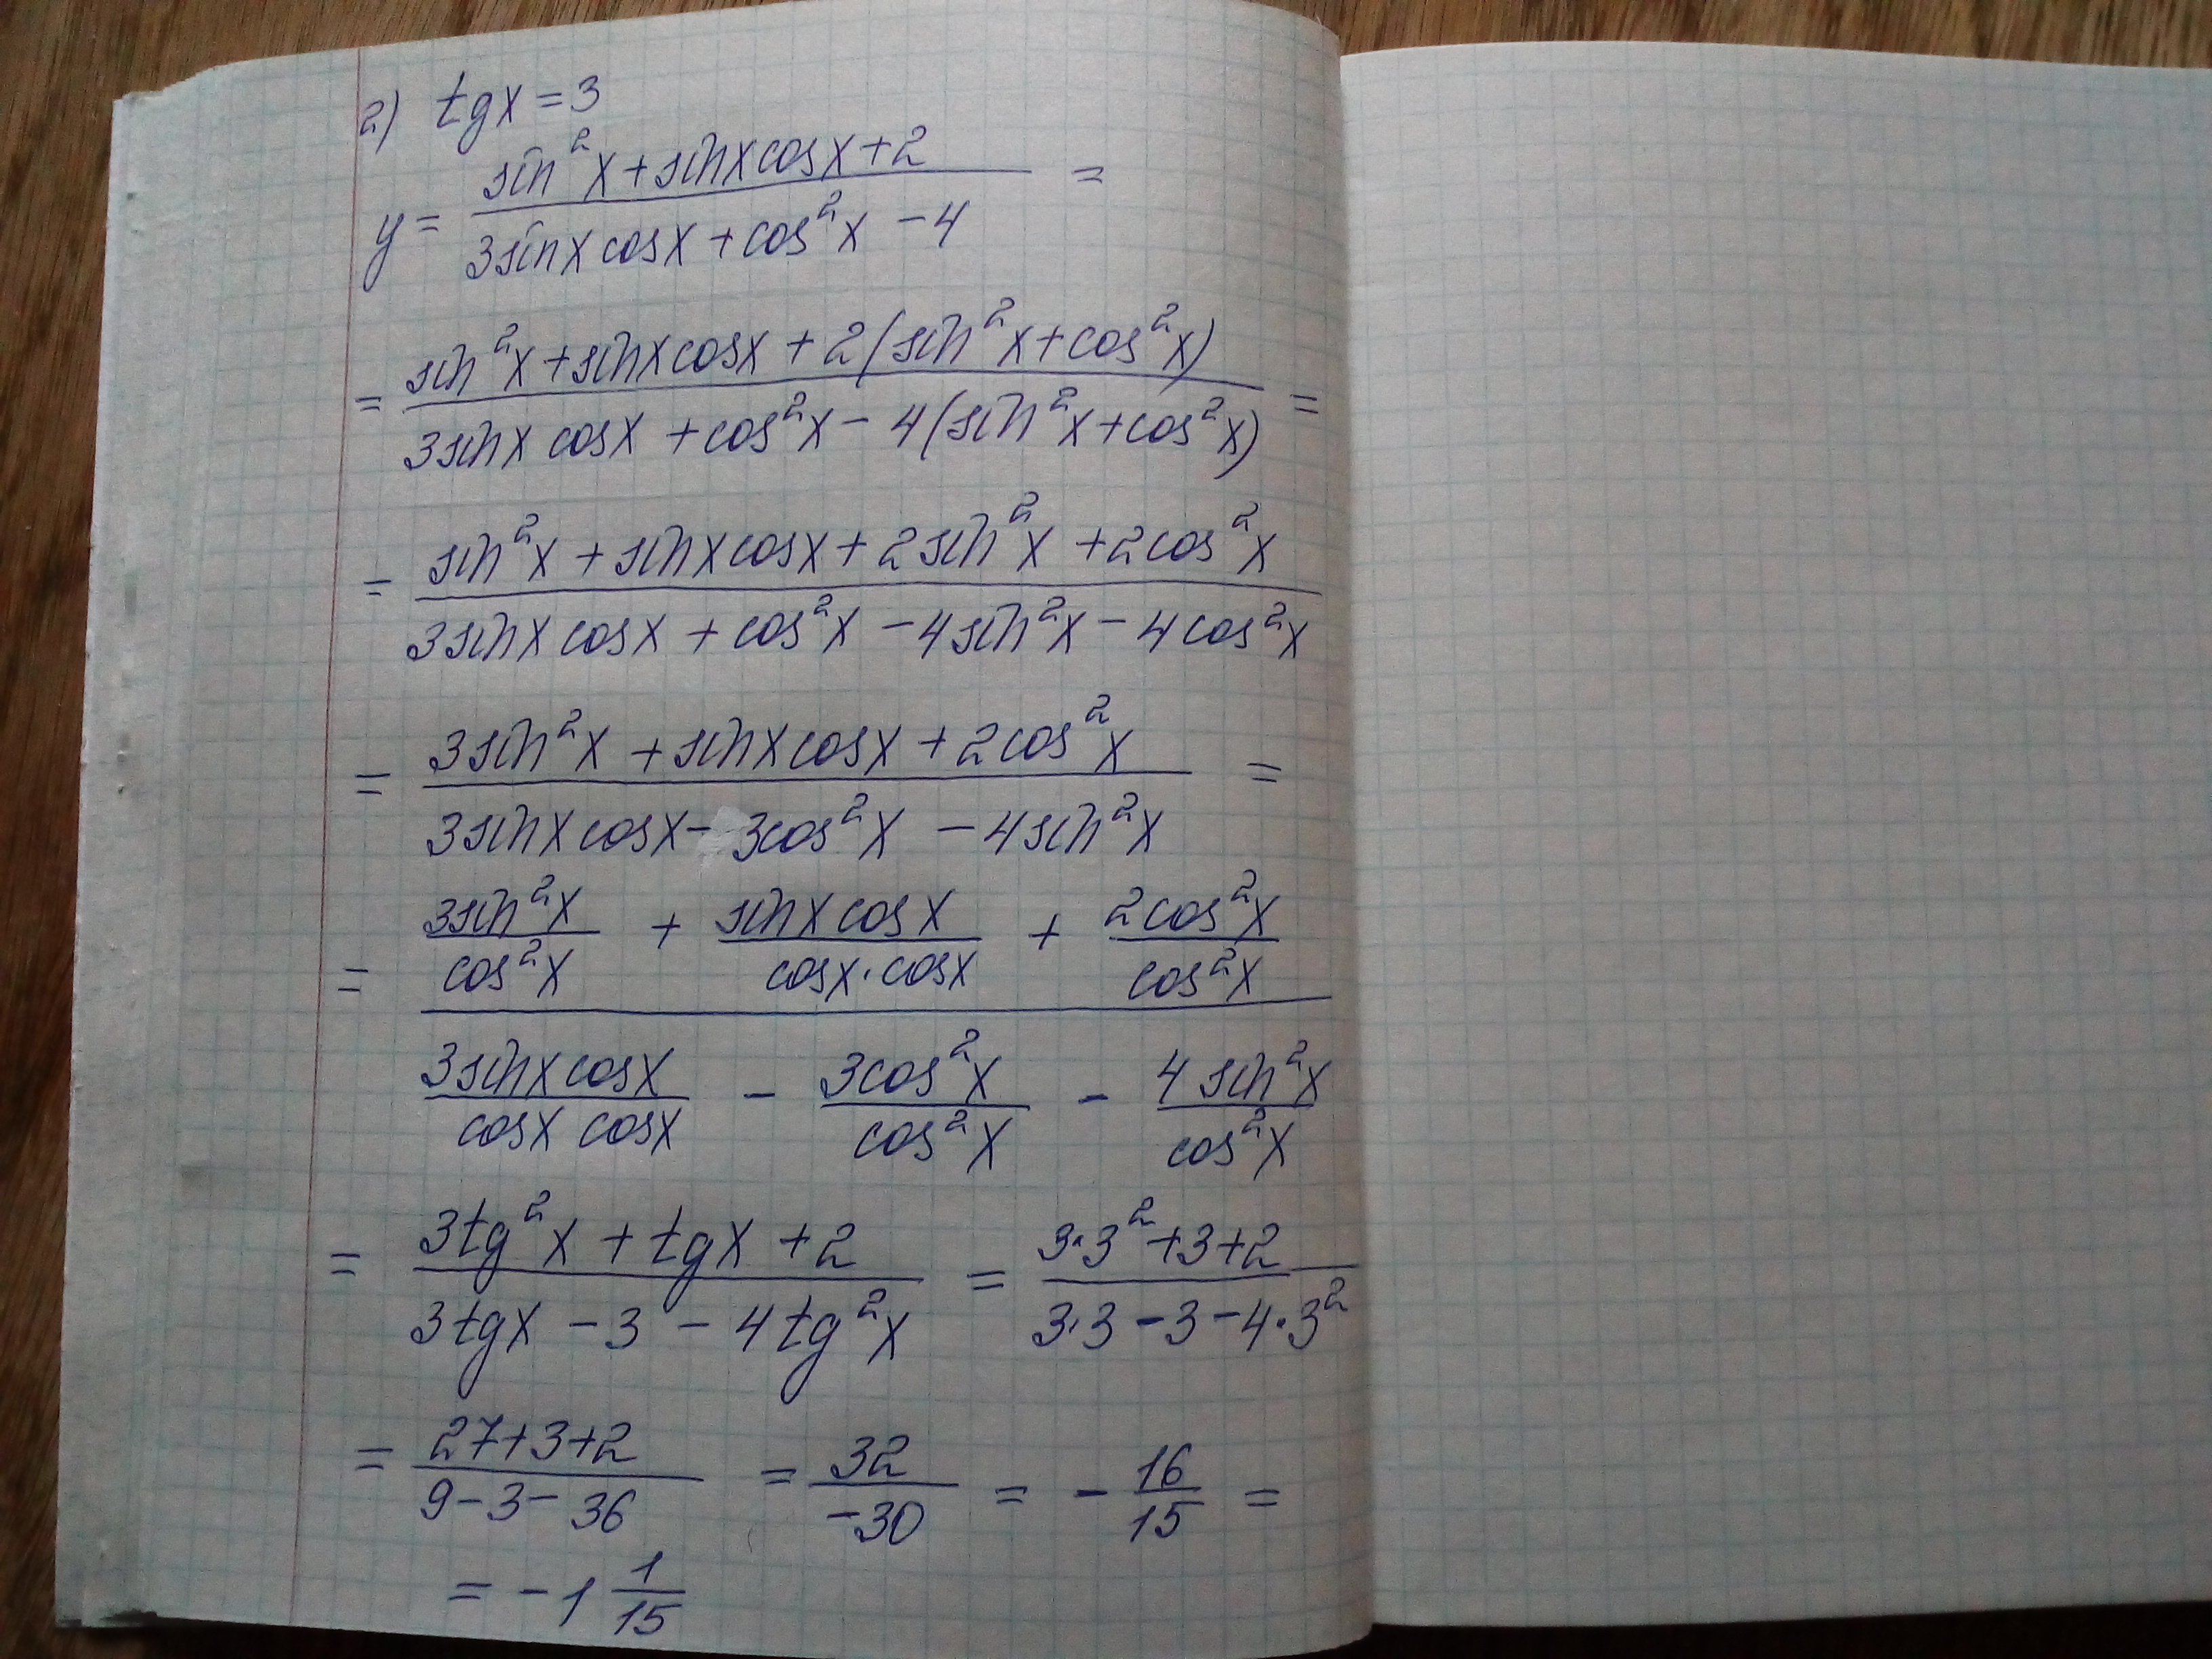 2) tgx = 3
y = (sin²x + sinx cosx + 2) / (3sinx cosx + cos²x - 4) =
= (sin²x + sinx cosx + 2(sin²x + cos²x)) / (3sinx cosx + cos²x - 4(sin²x + cos²x)) =
= (sin²x + sinx cosx + 2sin²x + 2cos²x) / (3sinx cosx + cos²x - 4sin²x - 4cos²x)
= (3sin²x + sinx cosx + 2cos²x) / (3sinx cosx - 3cos²x - 4sin²x) =
= (3sin²x / cos²x + sinx cosx / cosx · cosx + 2cos²x / cos²x) / (3sinx cosx / cosx cosx - 3cos²x / cos²x - 4sin²x / cos²x)
= (3tg²x + tgx + 2) / (3tgx - 3 - 4tg²x) = (3·3² + 3 + 2) / (3·3 - 3 - 4·3²)
= (27 + 3 + 2) / (9 - 3 - 36) = 32 / -30 = - 16/15 =
= -1 1/15